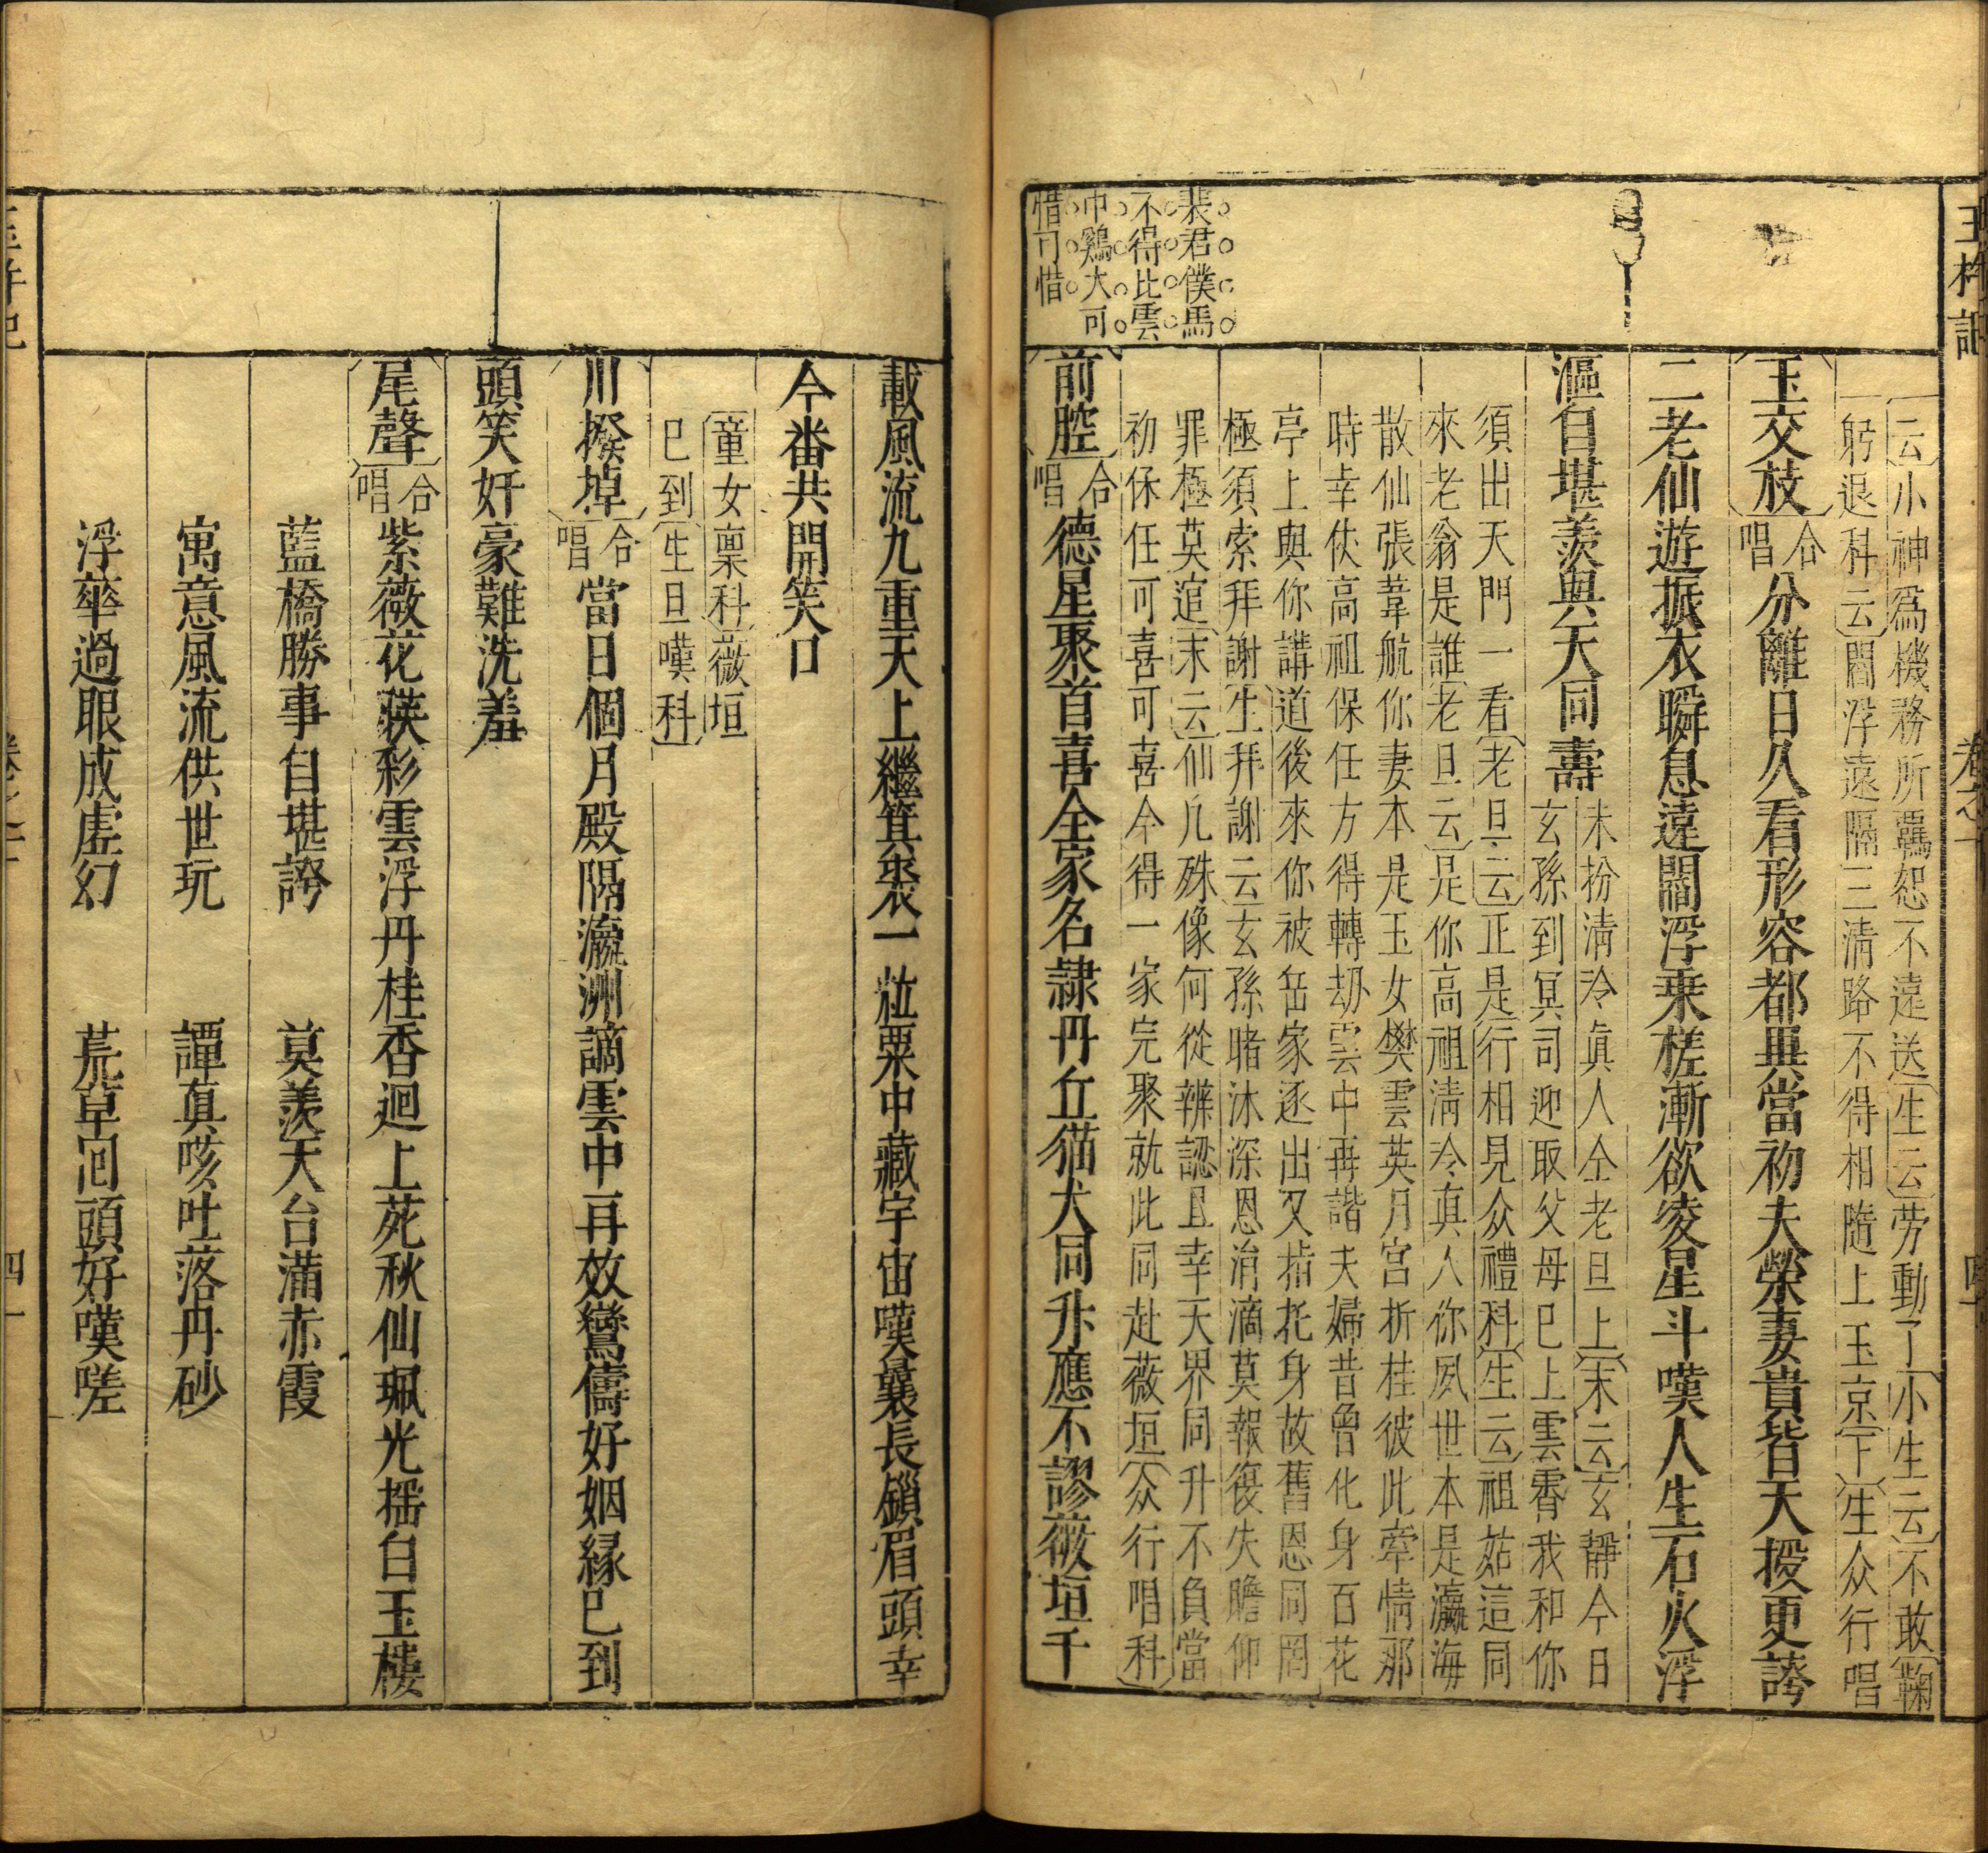 玉杵記
云小神爲機務所羈恕不遠送生云劳動了小生云不敢鞠
躬退科云閻浮遠隔三清路不得相隨上玉京下生众行唱
玉交枝合唱分離日久看形容都異當初夫榮妻貴皆天授更誇
二老仙遊振衣瞬息遠閻浮乗槎漸欲凌星斗嘆人生石火浮
漚自堪羨與天同壽末扮清泠真人仝老旦上末云玄靜今日
玄孫到冥司迎取父母已上雲霄我和你
須出天門一看老旦云正是行相見众禮科生云祖姑這同
來老翁是誰老旦云是你高祖清泠真人你夙世本是瀛海
散仙張葦航你妻本是玉女樊雲英月宫折桂彼此牽情那
時幸伏高祖保任方得轉刼雲中再諧夫婦昔曾化身百花
亭上與你講道後來你被岳家逐出又指托身故舊恩同罔
極須索拜謝生拜謝云玄孫睹沐深恩涓滴莫報復失瞻仰
罪極莫逭末云仙凡殊像何從辨認且幸天界同升不負當
初保任可喜可喜今得一家完聚就此同赴薇垣众行唱科
裴君僕馬
不得比雲
中鷄犬可
惜可惜
前腔合唱德星聚首喜全家名隷丹丘猫犬同升應不謬薇垣千
載風流九重天上繼箕裘一粒粟中藏宇宙嘆曩長鎖眉頭幸
今番共開笑口
童女禀科薇垣
已到生旦嘆科
川撥掉合唱當日個月殿隔瀛洲謫雲中再效鸞儔好姻緣已到
頭笑奸豪難洗羞
尾聲合唱紫薇花𦶜彩雲浮丹桂香迴上苑秋仙珮光摇白玉樓
藍橋勝事自堪誇　莫羨天台滿赤霞
寓意風流供世玩　譚真咳吐落丹砂
浮華過眼成虛幻　荒草囘頭好嘆嗟
四一